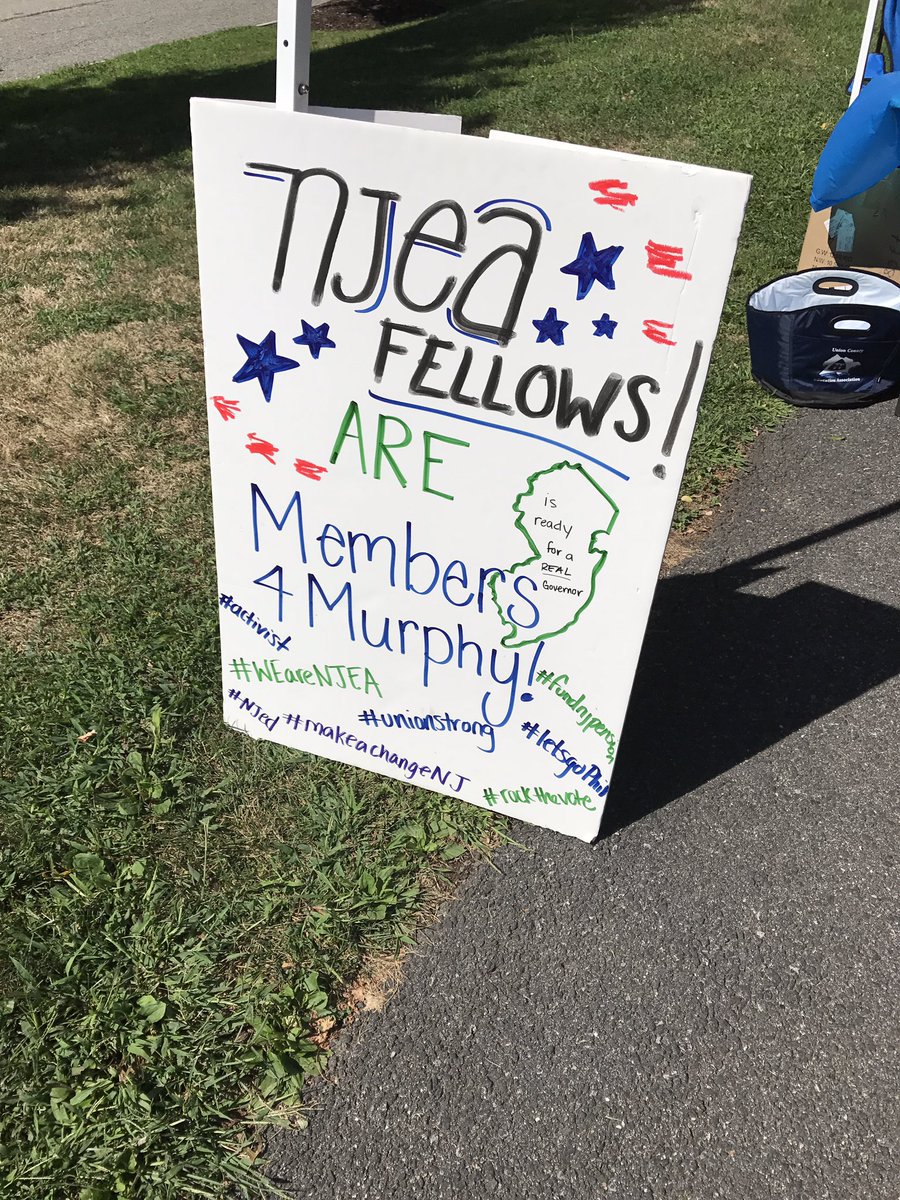 njea
FELLOWS!
ARE
Members
4 Murphy!
is
ready
for a
REAL
Governor
#activist
#WEareNJEA
#NJed
#makeachangeNJ
#unionstrong
#fundnjpension
#letsgoPhil
#rockthevote
Union County
Education Association